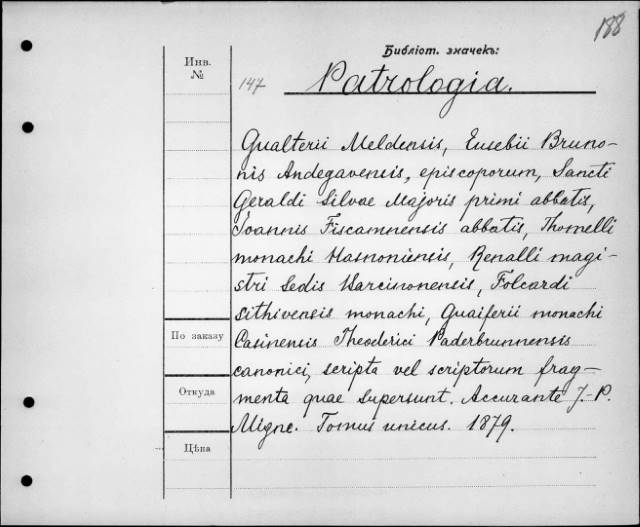 188
Библіот. значекъ:
Инв.
№
147
Patrologia.
Gualterii Meldensis, Eusebii Bruno-
nis Andegavensis, episcoporum, Sancti
Geraldi Silvae Majoris primi abbatis,
Joannis Fiscamnensis abbatis, Thomelli
monachi Hasnoniensis, Renalli magi-
stri Sedis Barcinonensis, Folcardi
Sithivensis monachi, Guaiferii monachi
По заказу
Casinensis Theoderici Paderbrunnensis
canonici, scripta vel scriptorum frag-
Откуда
menta quae supersunt. Accurante J.-P.
Migne. Tomus unicus. 1879.
Цѣна